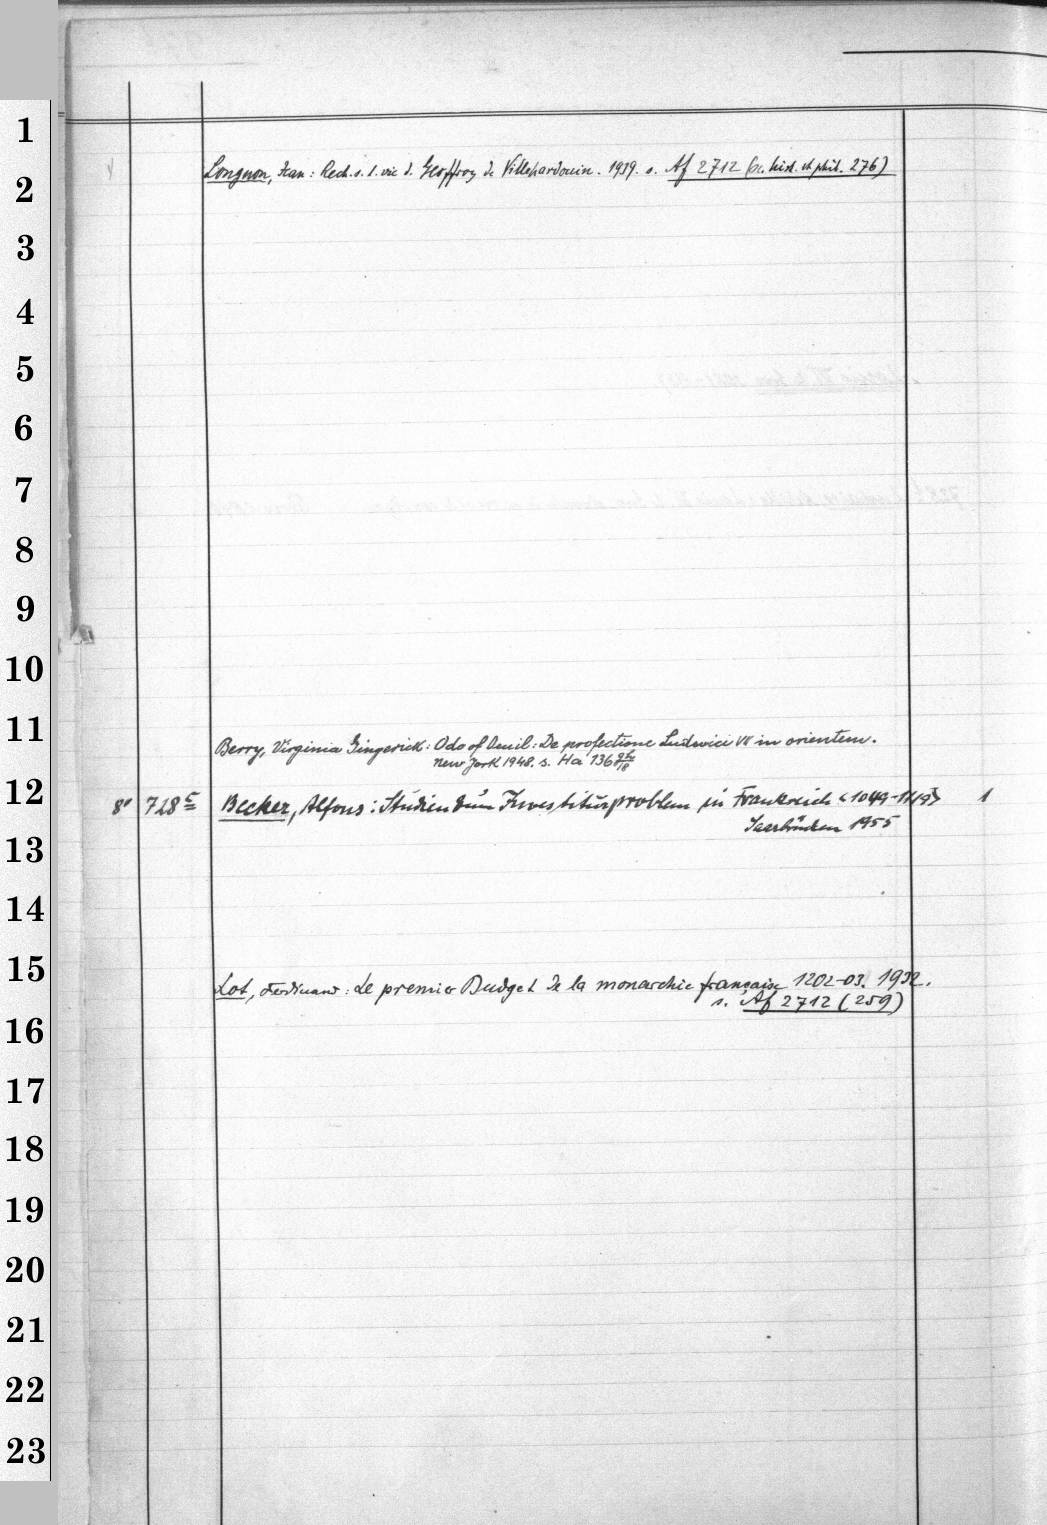 1
Longnon, Jean: Rech. s. l. vie d. Geoffroy de Villehardouin. 1939. s. Af 2712 (sc. hist. et phil. 276)
2
3
4
5
6
7
8
9
10
11
Berry, Virginia Gingerick: Odo of Deuil: De profectione Ludovici VII in orientem.
New York 1948. s. Ha 136
12
8° 728 c Becker, Alfons: Studien zum Investiturproblem in Frankreich <1049-1119> 1
Saarbrücken 1955
13
14
15
Lot, Ferdinand: Le premier Budget de la monarchie française 1202-03. 1932.
s. Af 2712 (259)
16
17
18
19
20
21
22
23